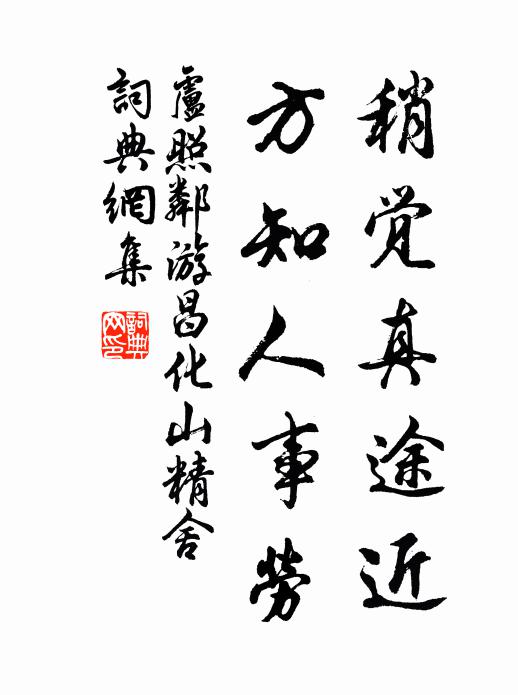 稍觉真途近
方知人事勞
盧照鄰游昌化山精舍
詞典網集
詞典網印